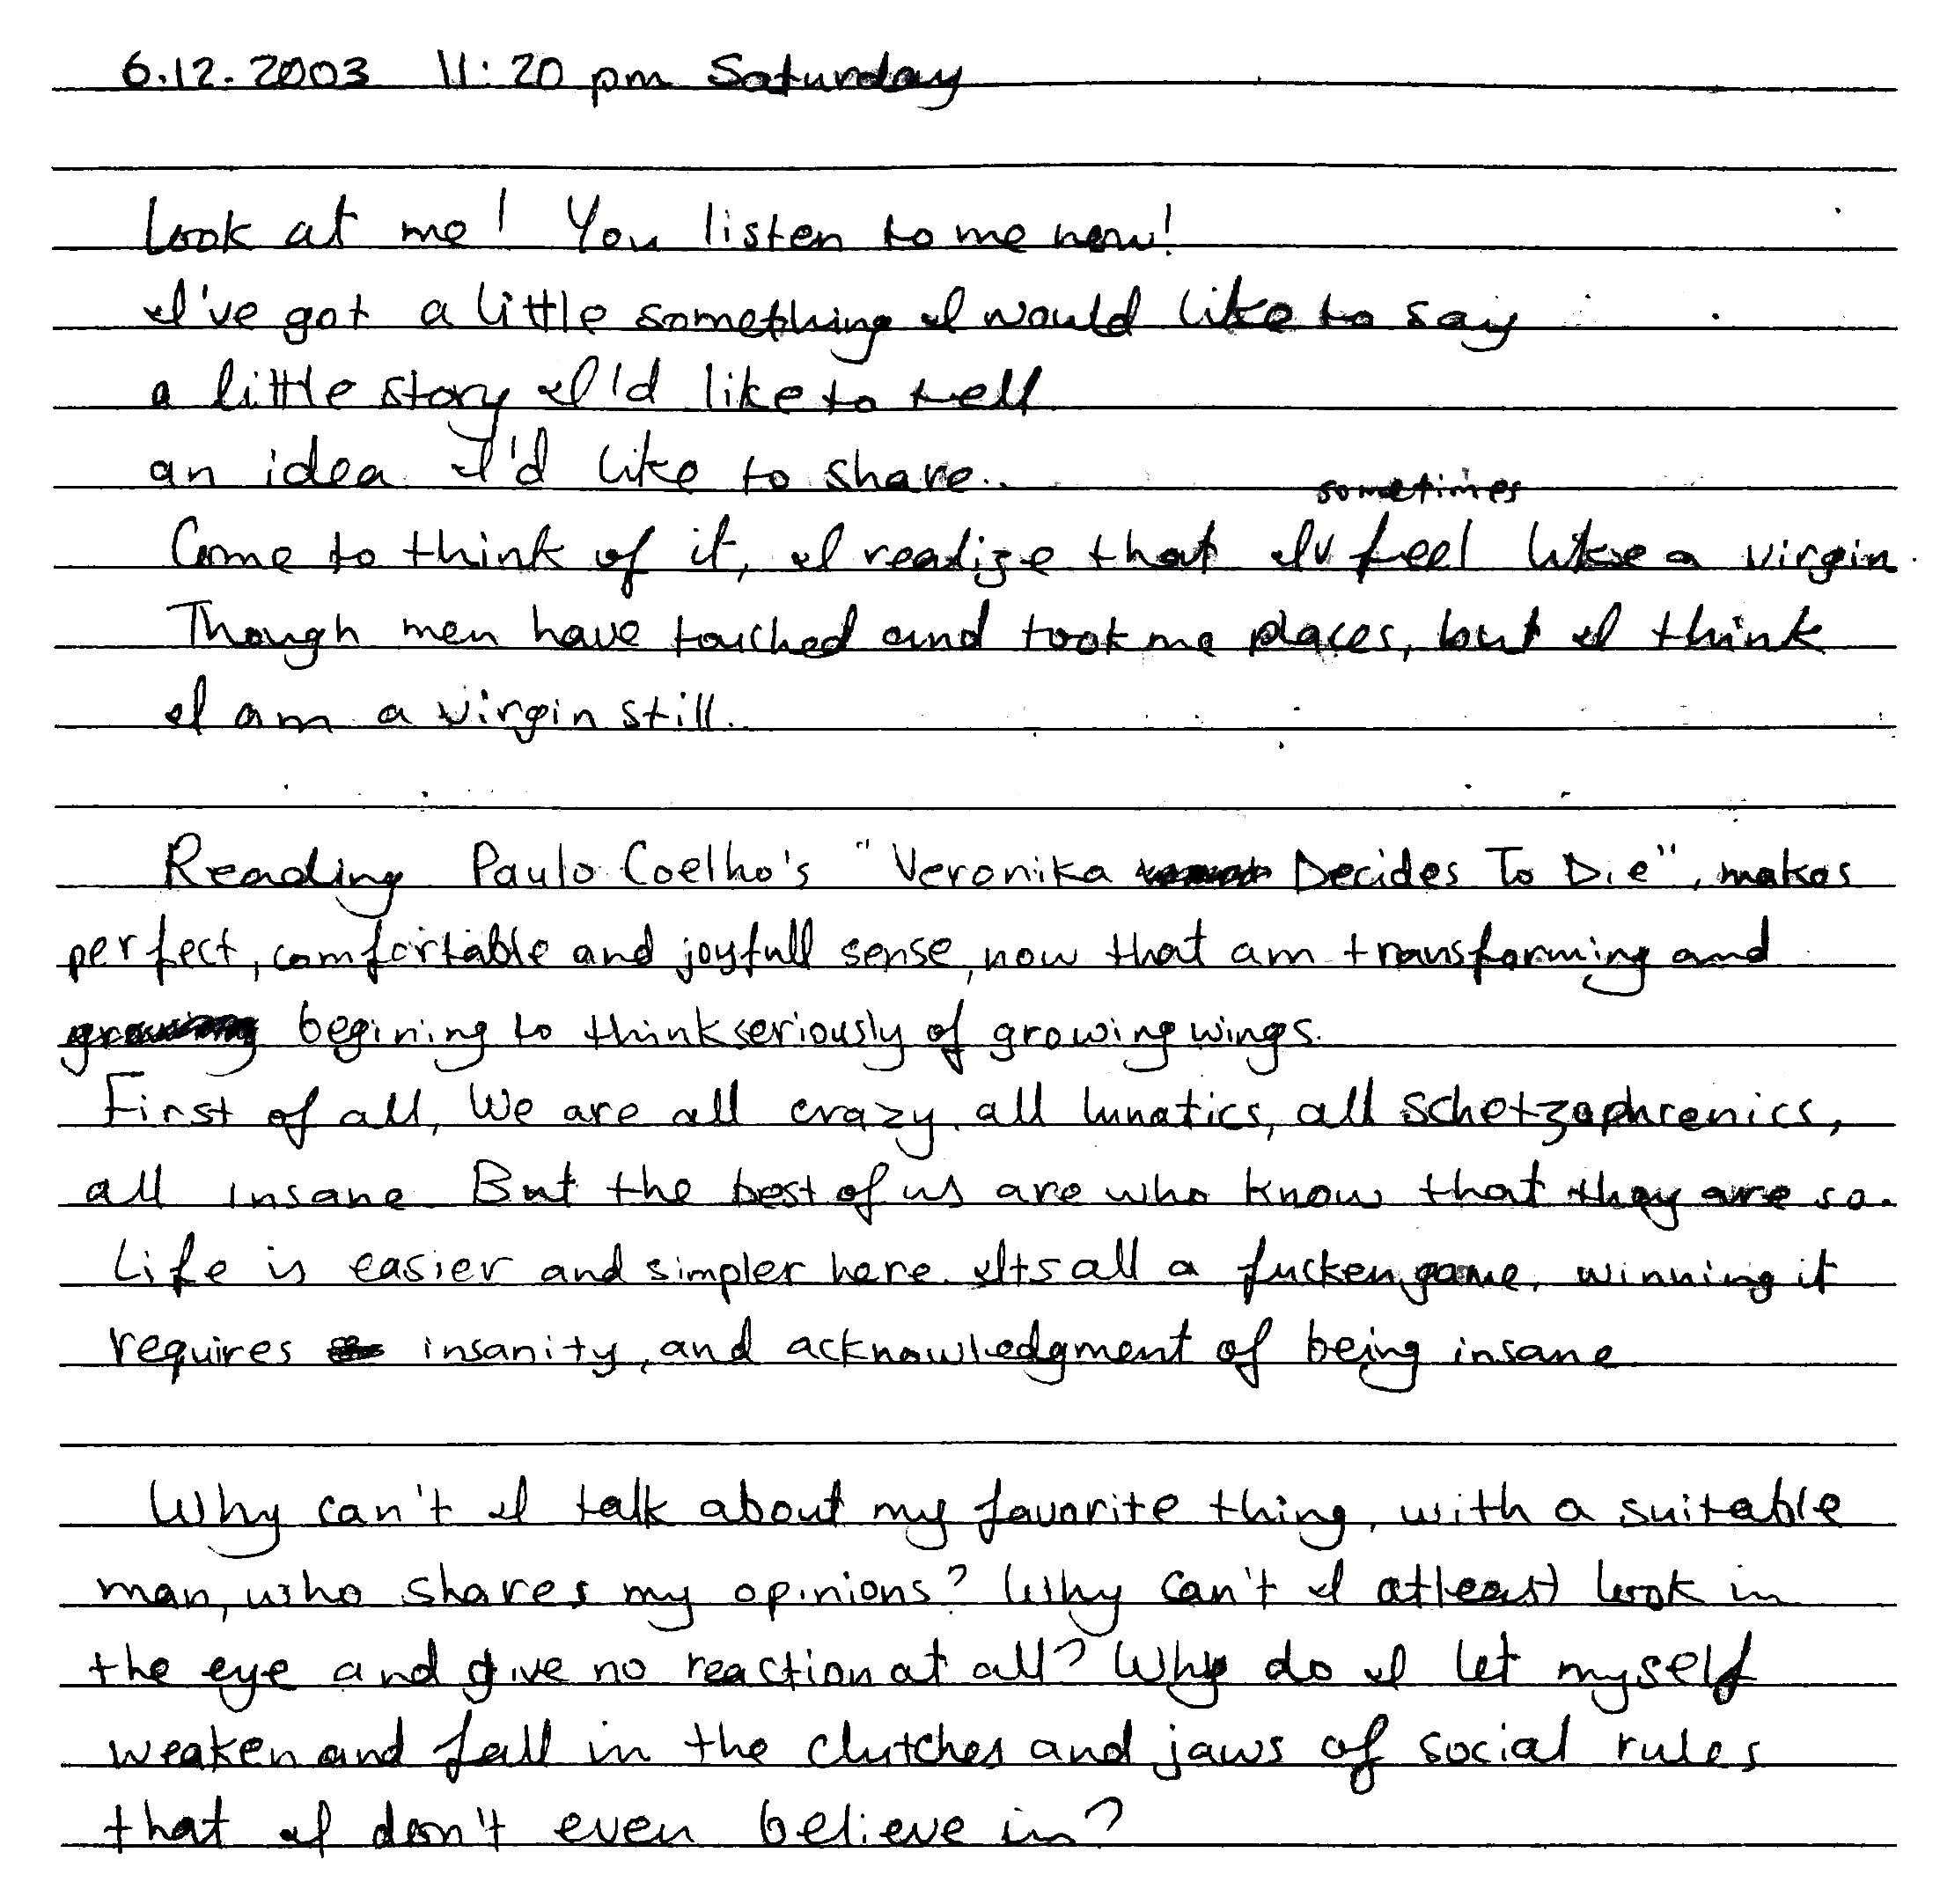 6.12.2003 11:20 pm Saturday
Look at me! You listen to me now!
I've got a little something I would like to say
a little story I'd like to tell
an idea I'd like to share..
sometimes
Come to think of it, I realize that I v feel like a virgin.
Though men have touched and took me places, but I think
I am a virgin still.
Reading Paulo Coelho's "Veronika Decides To Die", makes
perfect, comfortable and joyfull sense, now that am transforming and
growing begining to think seriously of growing wings.
First of all, We are all crazy, all lunatics, all schetzophrenics,
all insane. But the best of us are who know that they are so.
Life is easier and simpler here. Its all a fucken game, winning it
requires insanity, and acknowledgment of being insane
Why can't I talk about my favorite thing, with a suitable
man, who shares my opinions? Why can't I atleast look in
the eye and give no reaction at all? Why do I let myself
weaken and fall in the clutches and jaws of social rules
that I don't even believe in?